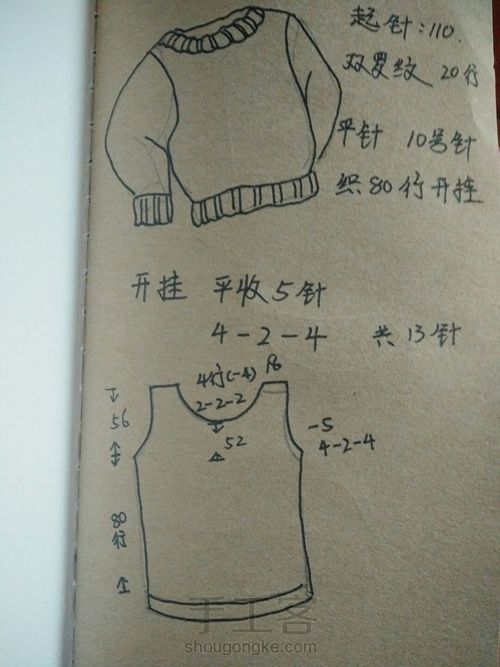 起针:110.
双罗纹 20行
平针 10号针
织80行开挂
开挂 平收5针
4-2-4 共13针
4行(-4) 18
2-2-2
56
52
-5
4-2-4
80行
手工客
shougongke.com